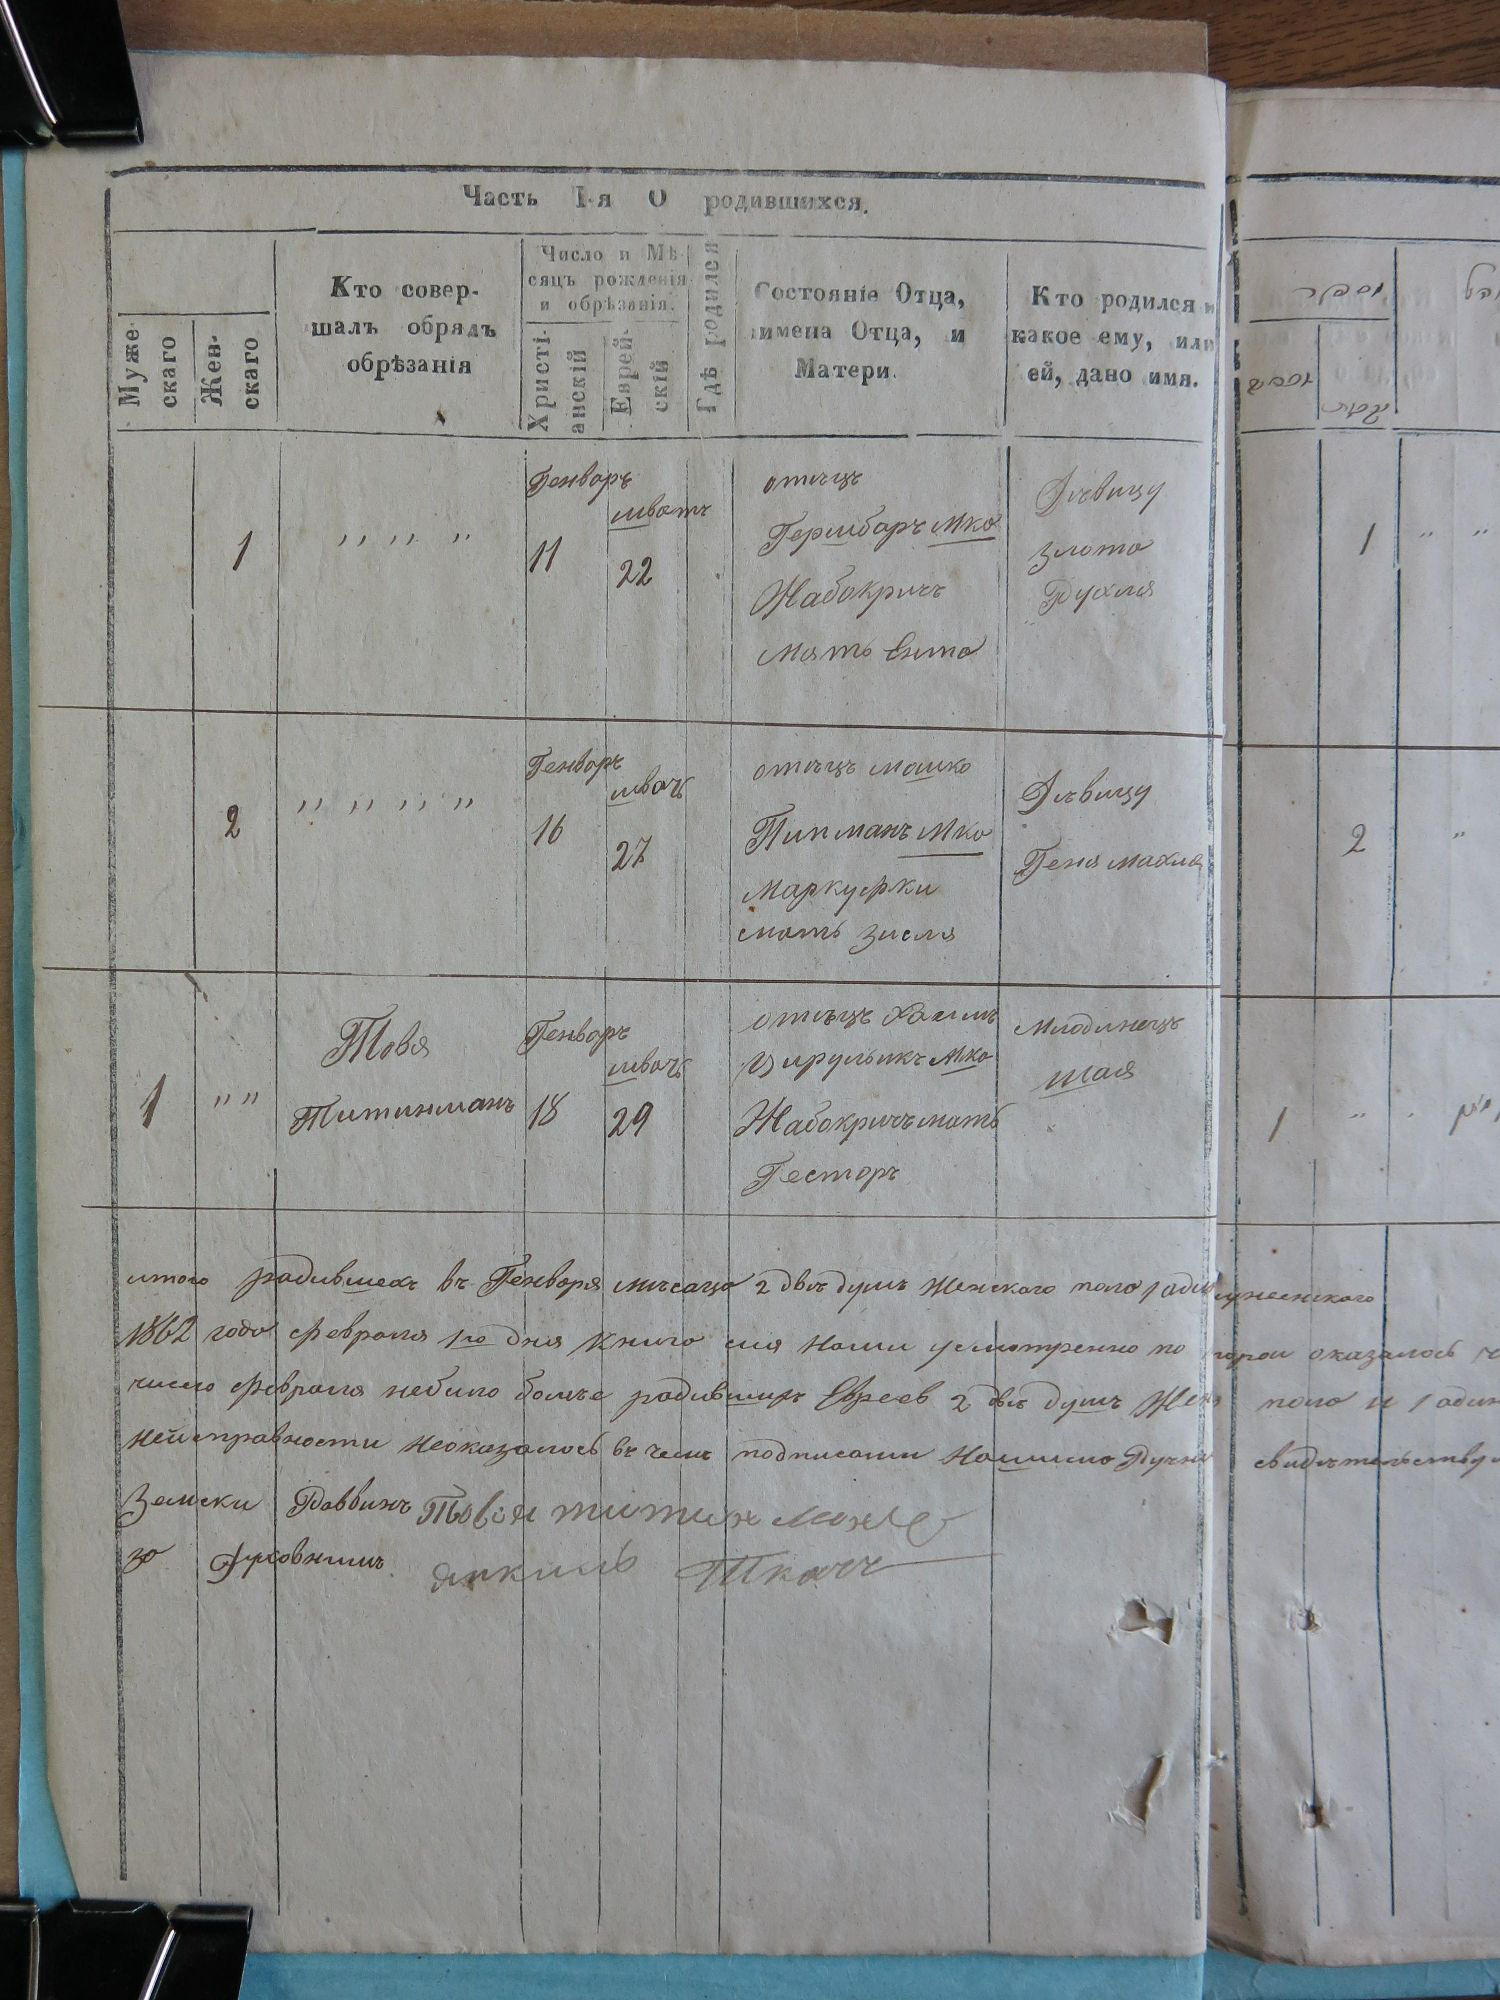 Часть I-я О родившихся.
Муже-
скаго
Жен-
скаго
Кто совер-
шалъ обрядъ
обрѣзанія
Число и Мѣ-
сяцъ рожденія
и обрѣзанія.
Христі-
анскій
Еврей-
скій
Гдѣ родился
Состояніе Отца,
имена Отца, и
Матери.
Кто родился и
какое ему, или
ей, дано имя.
1
" " "
Генваръ
11
шватъ
22
отецъ
Гершбаръ Мко
Жабокричъ
мать Ента
Дѣвицу
Злота
Рухля
2
" " " "
Генваръ
16
швать
27
отецъ Мошко
Типманъ Мко
Маркуфки
мать Зисля
Дѣвицу
Геня Махля
1
" "
Товя
Титинманъ
Генваръ
18
швать
29
отецъ Хаимъ
Цирульикъ Мко
Жабокричъ мать
Гестеръ
Младинецъ
Шая
1
2
1
итого родившехъ въ Генваря мѣсаца 2 двѣ душъ Женскаго пола 1 один мужескаго
1862 года февраля 1го дня Книга сия Нами усмотренно по которои оказалось
число февраля небило болѣе родившихъ Евреев 2 двѣ душъ Жен пола и 1 один
нейсправности неоказалось въ чемъ подписами Нашимо Ручни свидѣтельству
Земски Раввинъ Товия титинманъ
за Духовнимъ Янкиль Ткачъ